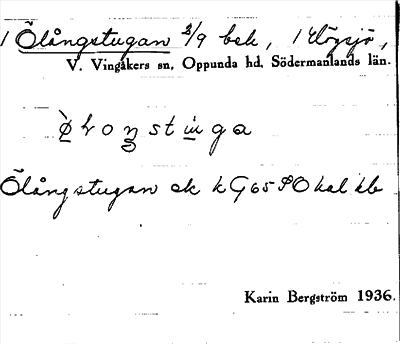 1 Ölångstugan 2/9 bek, 1 Högsjö,
V. Vingåkers sn, Oppunda hd, Södermanlands län.
Ölångstugan ek k G 65 SO kal kb
Karin Bergström 1936.